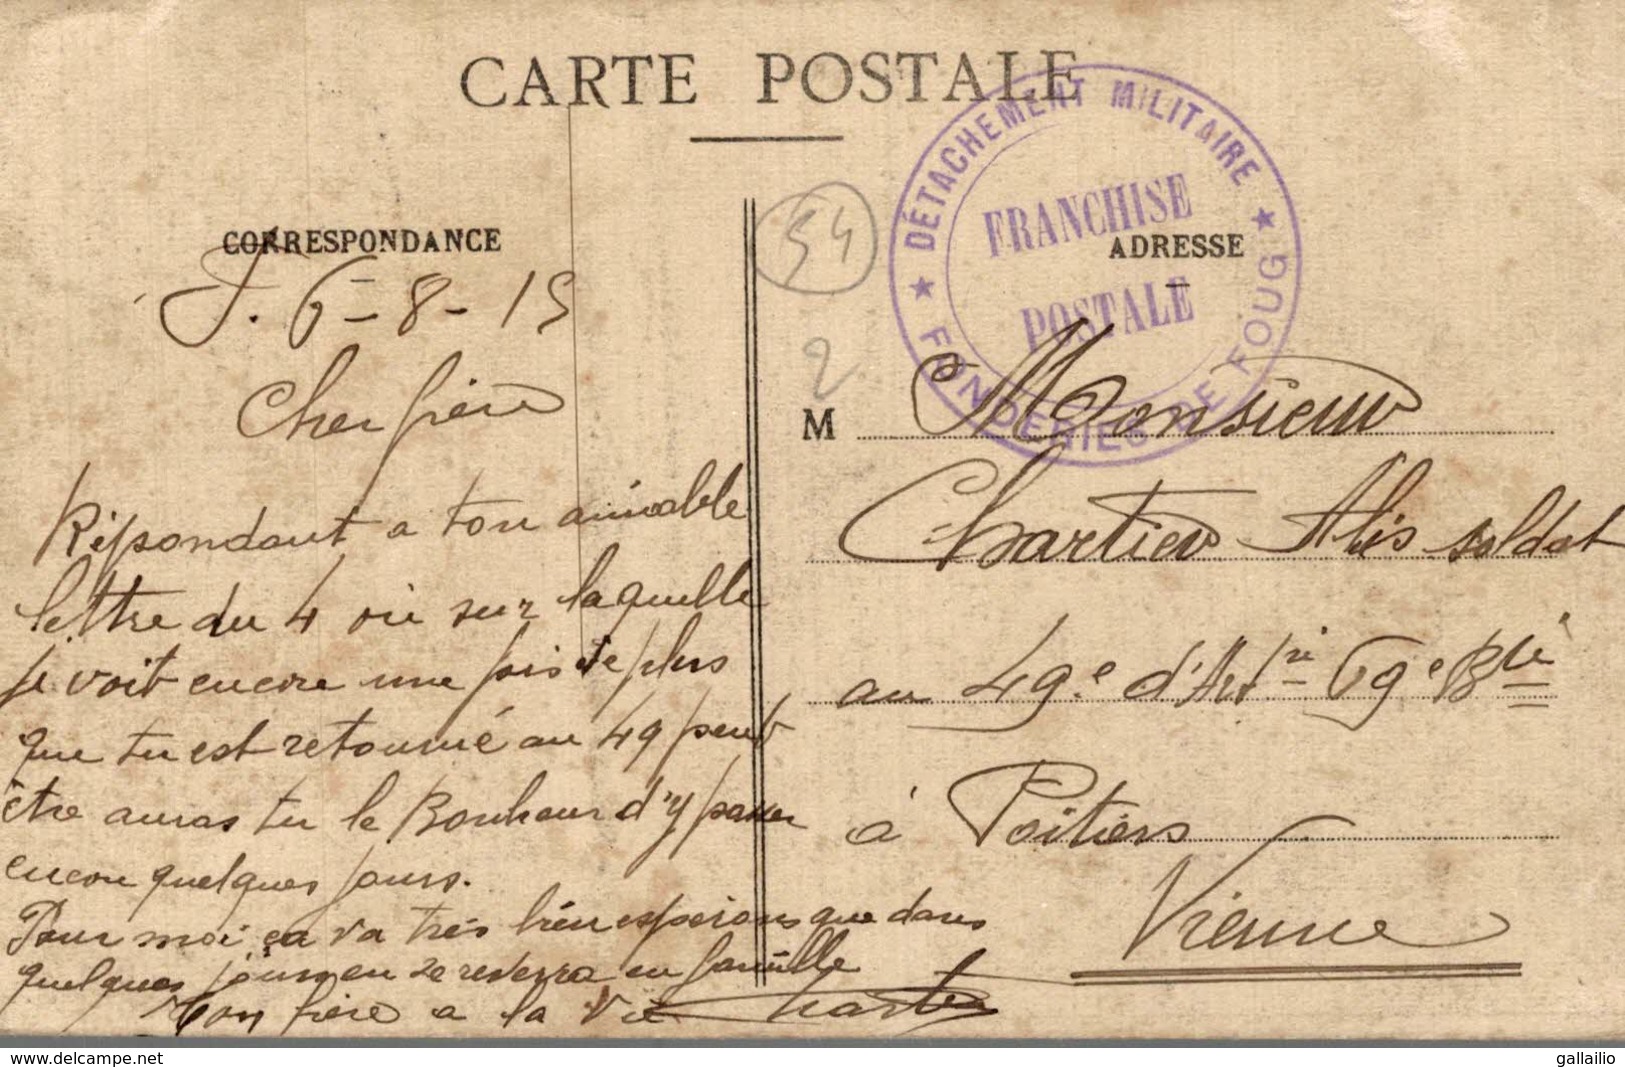 CARTE POSTALE
CORRESPONDANCE
F. 6-8-15
Cher frère
Répondant a ton aimable
lettre du 4 où sur laquelle
je voit encore une fois de plus
que tu est retourné au 49 peut
être auras tu le Bonheur d'y passer
encore quelques jours.
Pour moi ça va très bien esperons que dans
quelques jours on se reverra en famille
Ton frère a la vie Chartier
54
2
DÉTACHEMENT MILITAIRE
FRANCHISE
POSTALE
FONDERIES DE FOUG
ADRESSE
M Monsieur
Chartier Alis soldat
au 49.e d'Artrie 69e Btie
à Poitiers
Vienne
delcampe.net
gallailio